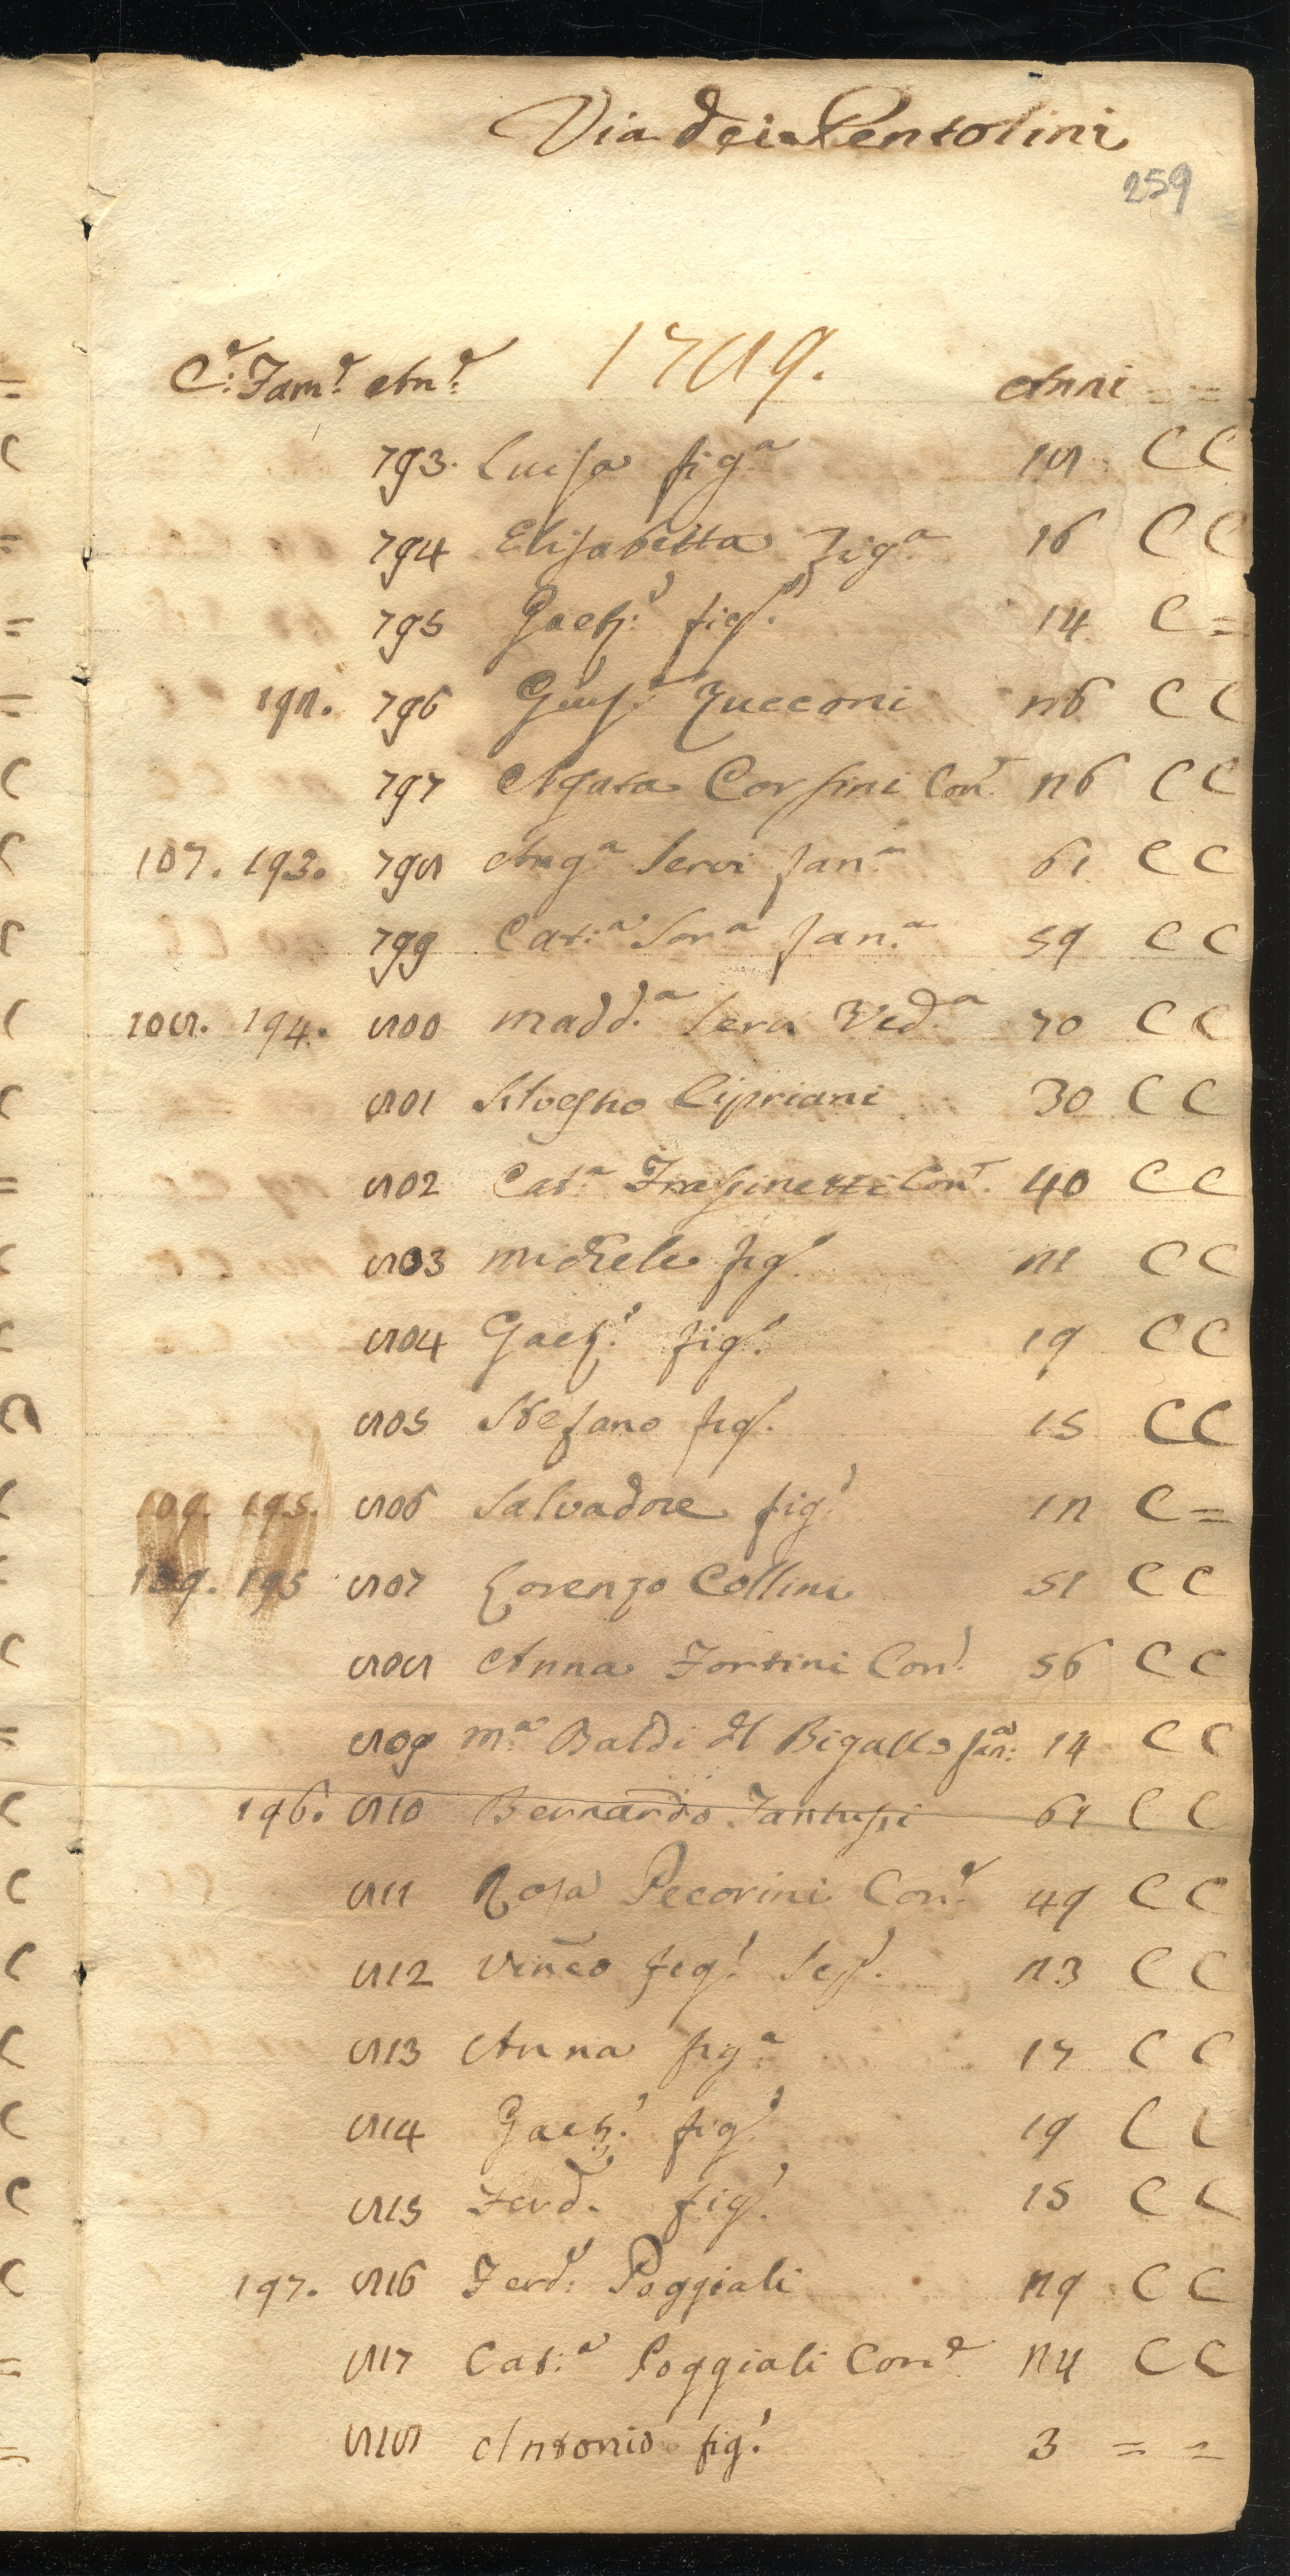 Via dei Pentolini
259
C.e Fam.e An.e 1789. Anni = =
793. Luisa fig.a 18 C C
794 Elisabetta Fig.a 16 C C
795 Gaet.o fig.o 14 C =
192. 796 Gius.e Zucconi 26 C C
797 Agata Corsini Con.e 26 C C
107. 193. 798 Ang.a Servi fan.a 61 C C
799 Cat.a Sor.a fan.a 59 C C
108. 194. 800 Madd.a Ved.a 70 C C
801 Silvestro Cipriani 30 C C
802 Cat.a Frassinetti Con.e 40 C C
803 Michele fig.o 21 C C
804 Gaet.o fig.o 19 C C
805 Stefano fig.o 15 C C
109. 195. 806 Salvadore fig.o 12 C =
109. 195 807 Lorenzo Collini 51 C C
808 Anna Fortini Con.e 56 C C
809 M.a Baldi del Bigallo fan.a 14 C C
196. 810 Bernardo 61 C C
811 Rosa Pecorini Con.e 49 C C
812 Vinc̃o fig.o 23 C C
813 Anna fig.a 17 C C
814 Gaet.o fig.o 19 C C
815 Ferd.o fig.o 15 C C
197. 816 Ferd.o Poggiali 29 C C
817 Cat.a Poggiali Con.e 24 C C
818 Antonio fig.o 3 = =